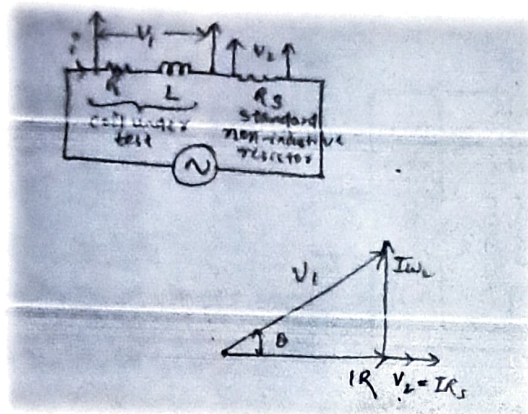 i V₁ V₂
R L RS
coil under test
standard
non-inductive
resistor
V₁ IωL
θ
IR V₂ = IRs